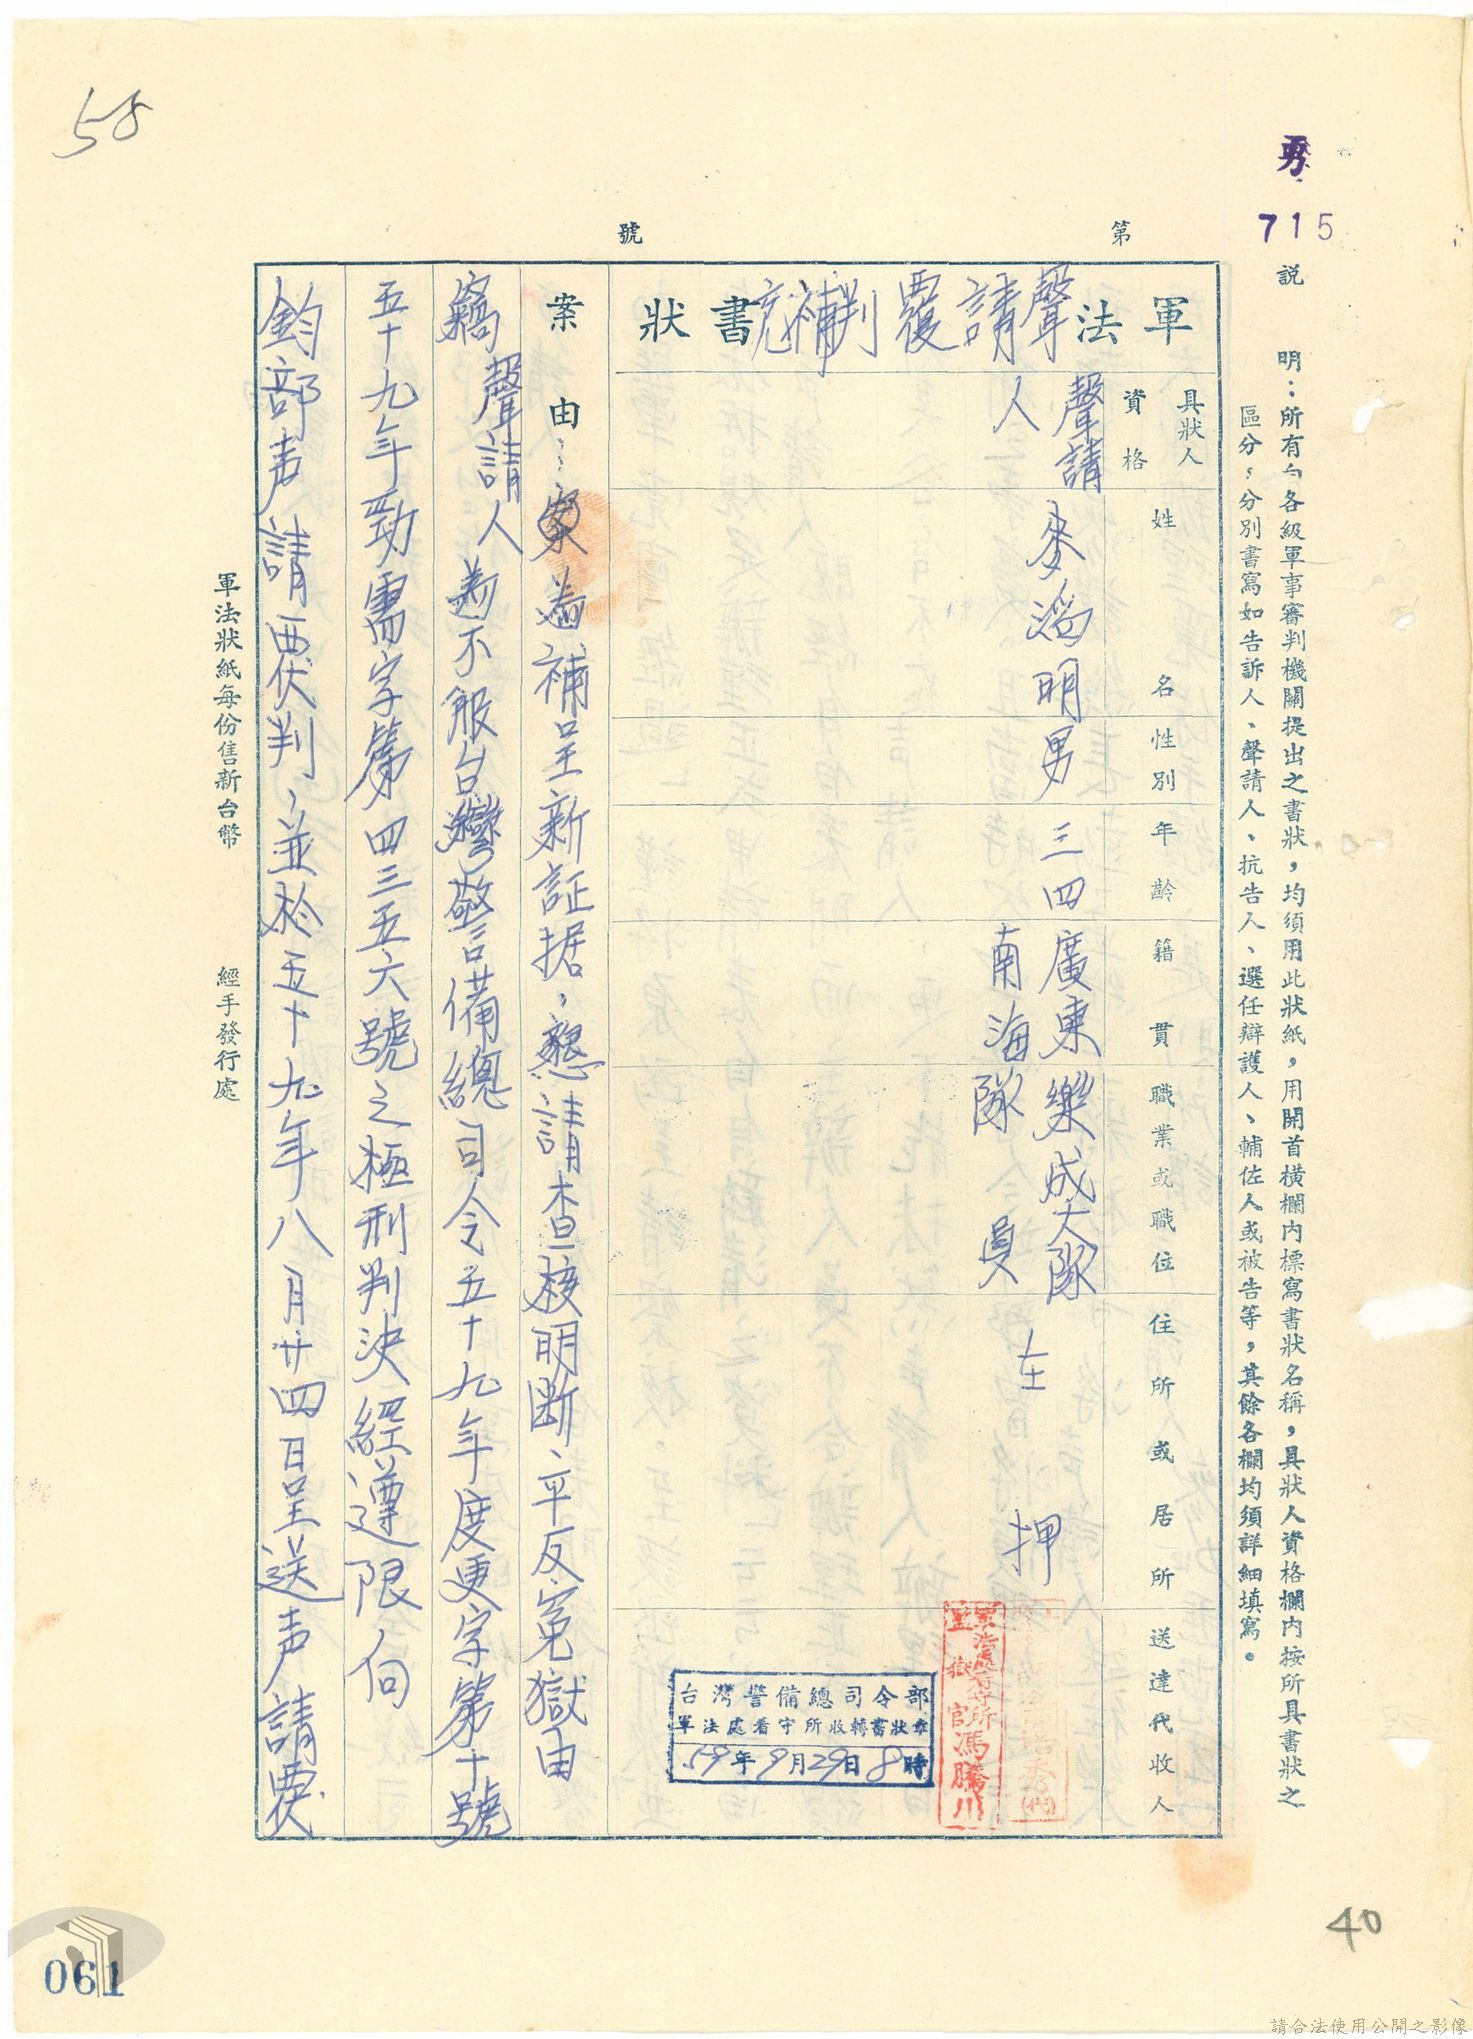 58
勇
715
第 號
說 明：所有向各級軍事審判機關提出之書狀，均須用此狀紙，用開首橫欄內標寫書狀名稱，具狀人資格欄內按所具書狀之
區分，分別書寫如告訴人、聲請人、抗告人、選任辯護人、輔佐人或被告等，其餘各欄均須詳細填寫。
軍法聲請覆判補充書狀
具狀人資格 姓名 性別 年齡 籍貫 職業或職位 住所或居所 送達代收人
聲請人 麥 明 男 三四 廣東南海 樂成大隊隊員 在押
軍法看守所
監獄官馮騰川
台灣警備總司令部
軍法處看守所收轉書狀章
59年9月29日8時
案由：為補呈新証据，懇請查核明斷、平反冤獄由
竊聲請人為不服台灣警備總司令五十九年度更字第十號
五十九年勁需字第四三五六號之極刑判決經遵限向
鈞部声請覆判、並於五十九年八月廿四日呈送声請覆
軍法狀紙每份售新台幣 經手發行處
40
061
請合法使用公開之影像